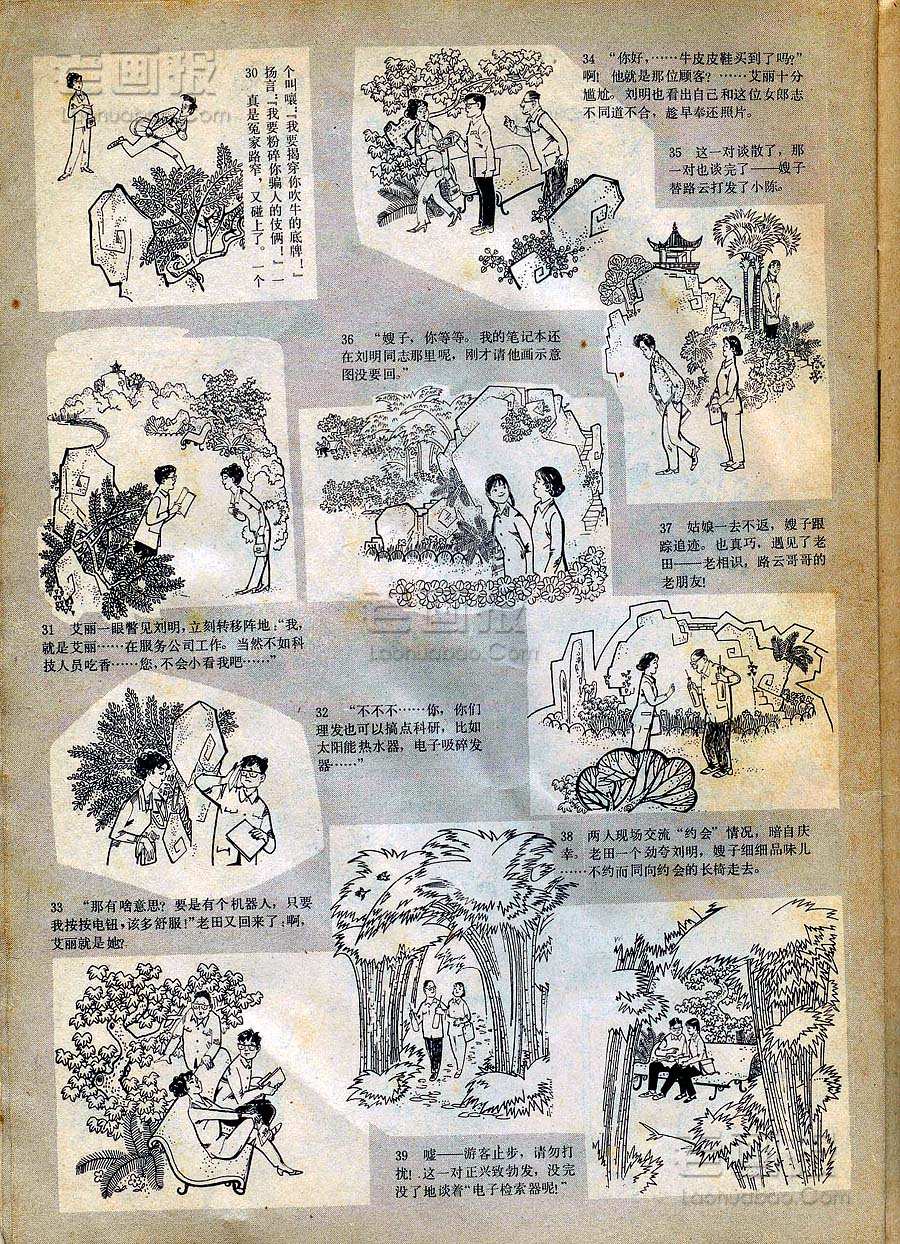 老画报
Laohuabao.Com
30 真是冤家路窄，又碰上了。一个
扬言：“我要粉碎你骗人的伎俩！”一
个叫嚷：“我要揭穿你吹牛的底牌！”
31 艾丽一眼瞥见刘明，立刻转移阵地：“我，
就是艾丽……在服务公司工作。当然不如科
技人员吃香……您，不会小看我吧……”
32 “不不不……你，你们
理发也可以搞点科研，比如
太阳能热水器，电子吸碎发
器……”
33 “那有啥意思？要是有个机器人，只要
我按按电钮，该多舒服！”老田又回来了；啊，
艾丽就是她？
34 “你好，……牛皮皮鞋买到了吗？”
啊！他就是那位顾客？……艾丽十分
尴尬。刘明也看出自己和这位女郎志
不同道不合，趁早奉还照片。
35 这一对谈散了，那
一对也谈完了——嫂子
替路云打发了小陈。
36 “嫂子，你等等。我的笔记本还
在刘明同志那里呢，刚才请他画示意
图没要回。”
37 姑娘一去不返，嫂子跟
踪追迹。也真巧，遇见了老
田——老相识，路云哥哥的
老朋友！
老画报
Laohuabao.Com
38 两人现场交流“约会”情况，暗自庆
幸。老田一个劲夸刘明，嫂子细细品味儿
……不约而同向约会的长椅走去。
39 嘘——游客止步，请勿打
扰！这一对正兴致勃发，没完
没了地谈着“电子检索器呢！”
老画报
Laohuabao.Com